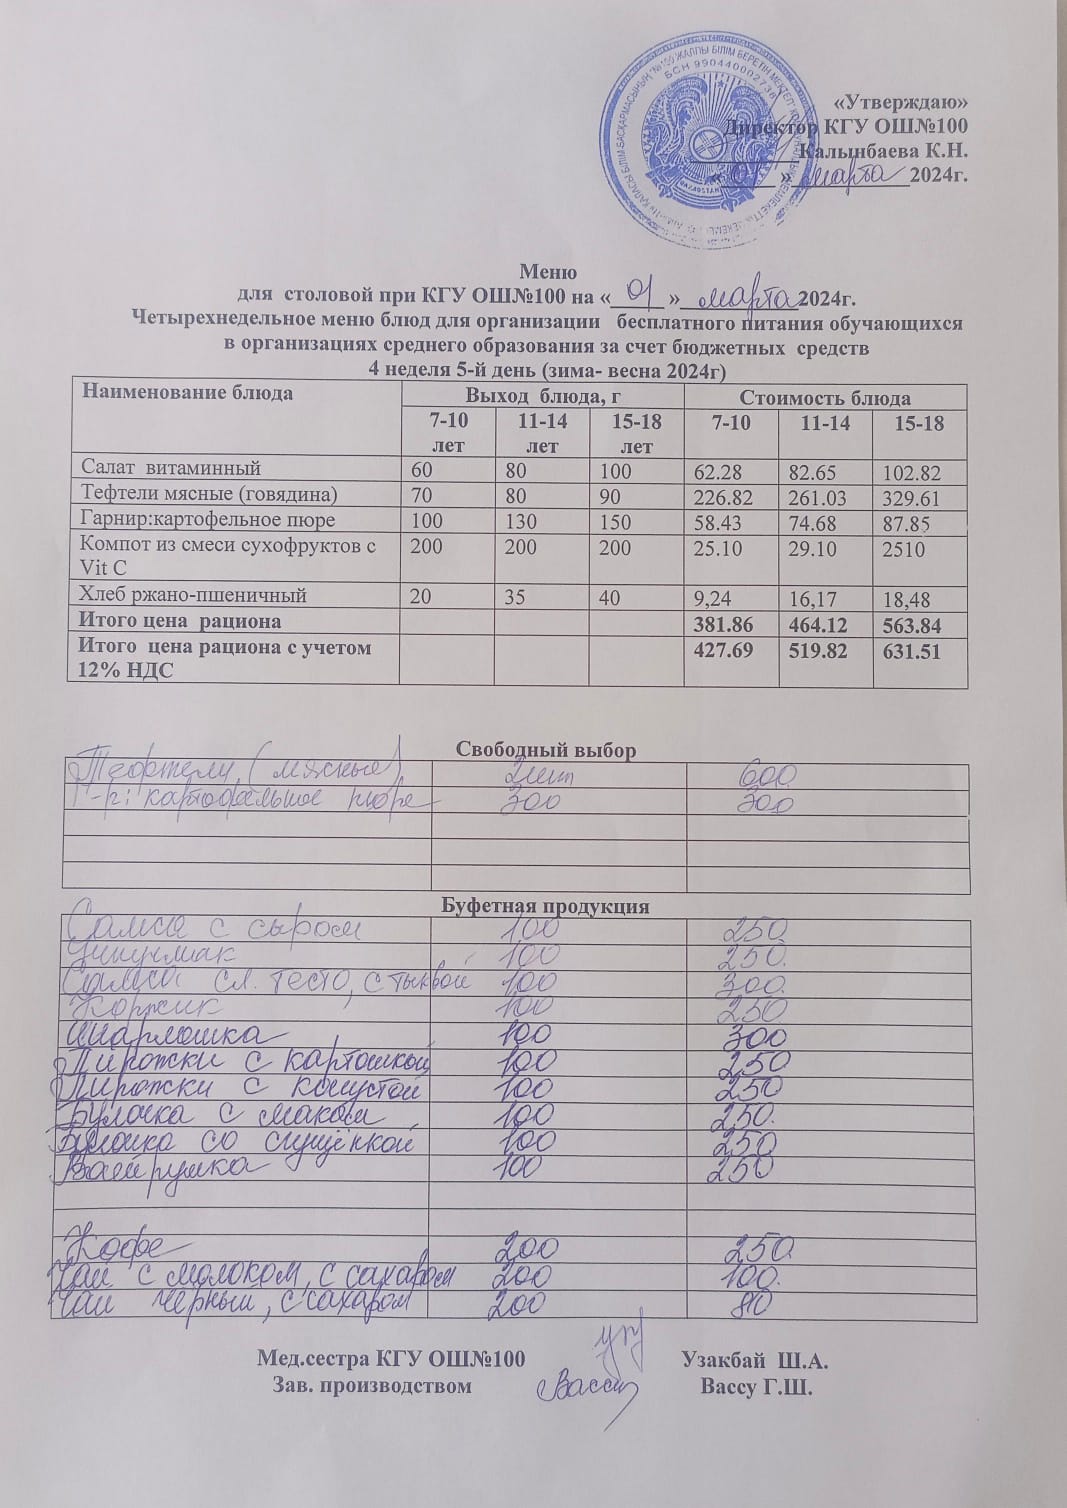 «Утверждаю»
Директор КГУ ОШ№100
Калынбаева К.Н.
« 01 » марта 2024г.
БСН 990440002738
Меню
для столовой при КГУ ОШ№100 на « 01 » марта 2024г.
Четырехнедельное меню блюд для организации бесплатного питания обучающихся
в организациях среднего образования за счет бюджетных средств
4 неделя 5-й день (зима- весна 2024г)
Наименование блюда Выход блюда, г Стоимость блюда
7-10 лет 11-14 лет 15-18 лет 7-10 11-14 15-18
Салат витаминный 60 80 100 62.28 82.65 102.82
Тефтели мясные (говядина) 70 80 90 226.82 261.03 329.61
Гарнир:картофельное пюре 100 130 150 58.43 74.68 87.85
Компот из смеси сухофруктов с 200 200 200 25.10 29.10 2510
Vit C
Хлеб ржано-пшеничный 20 35 40 9,24 16,17 18,48
Итого цена рациона 381.86 464.12 563.84
Итого цена рациона с учетом 427.69 519.82 631.51
12% НДС
Свободный выбор
Тефтели (мясные) 2шт 600
Г-р: картофельное пюре 300 300
Буфетная продукция
Самса с сыром 100 250
100 250.
Самса сл. тесто, с тыквой 100 300
Коржик 100 250
100 300
Пирожки с картошкой 100 250
Пирожки с капустой 100 250
Булочка с маком 100 250.
Булочка со сгущёнкой 100 250
Ватрушка 100 250
Кофе 200 250
Чай с молоком, с сахаром 200 100.
Чай черный, с сахаром 200 80
Мед.сестра КГУ ОШ№100 Узакбай Ш.А.
Зав. производством Вассу Вассу Г.Ш.